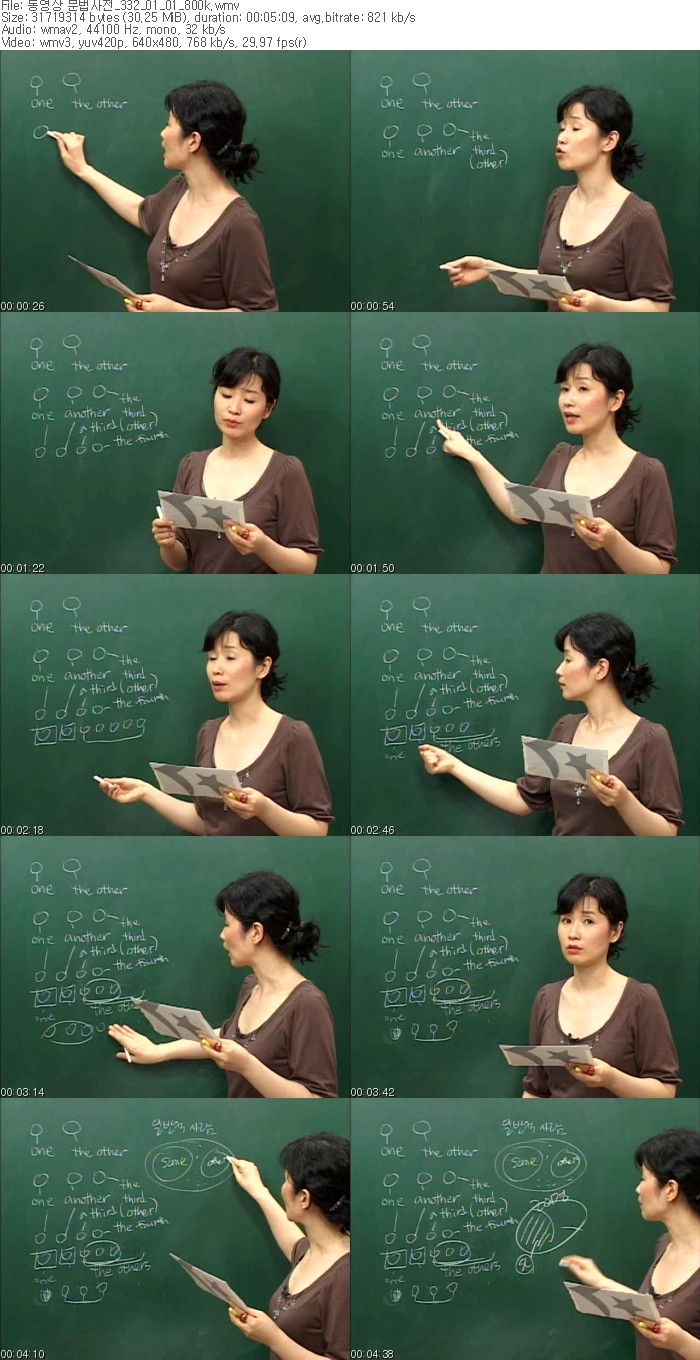 File: 동영상 문법사전_332_01_01_800k.wmv
Size: 31719314 bytes (30,25 MiB), duration: 00:05:09, avg.bitrate: 821 kb/s
Audio: wmav2, 44100 Hz, mono, 32 kb/s
Video: wmv3, yuv420p, 640x480, 768 kb/s, 29,97 fps(r)
one the other
00:00:26
one the other
the
one another third
(other)
00:00:54
one the other
the
one another third
a third (other)
the fourth
00:01:22
one the other
the
one another third
third (other)
the fourth
00:01:50
one the other
the
one another third
a third (other)
the fourth
00:02:18
one the other
the
one another third
a third (other)
the fourth
the others
one
00:02:46
one the other
the
one another third
a third (other)
the fourth
the others
one
00:03:14
one the other
the
one another third
a third (other)
the fourth
the others
one
00:03:42
일반적 사람
one the other
some others
the
one another third
a third (other)
the fourth
the others
one
00:04:10
일반적 사람
one the other
some others
the
one another third
a third (other)
the fourth
the others
one
00:04:38